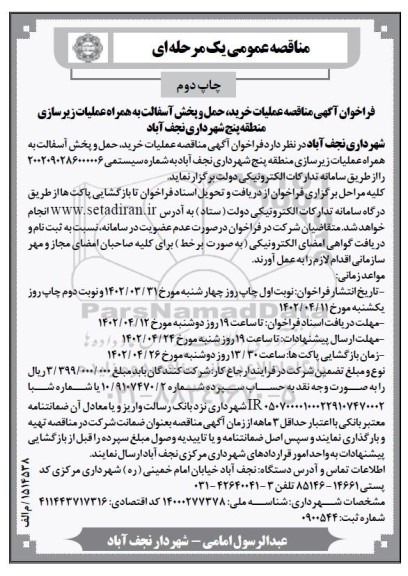 مناقصه عمومی یک مرحله ای
چاپ دوم
فراخوان آگهی مناقصه عملیات خرید، حمل و پخش آسفالت به همراه عملیات زیرسازی
منطقه پنج شهرداری نجف آباد
شهرداری نجف آباد در نظر دارد فراخوان آگهی مناقصه عملیات خرید، حمل و پخش آسفالت به
همراه عملیات زیرسازی منطقه پنج شهرداری نجف آباد به شماره سیستمی ۲۰۰۲۰۹۰۲۸۶۰۰۰۰۰۶
را از طریق سامانه تدارکات الکترونیکی دولت برگزار نماید.
کلیه مراحل برگزاری فراخوان از دریافت و تحویل اسناد فراخوان تا بازگشایی پاکت ها از طریق
درگاه سامانه تدارکات الکترونیکی دولت (ستاد) به آدرس www.setadiran.ir انجام
خواهد شد. متقاضیان شرکت در فراخوان در صورت عدم عضویت در سامانه، نسبت به ثبت نام و
دریافت گواهی امضای الکترونیکی (به صورت برخط) برای کلیه صاحبان امضای مجاز و مهر
سازمانی اقدام لازم را به عمل آورند.
مواعد زمانی:
-تاریخ انتشار فراخوان: نوبت اول چاپ روز چهار شنبه مورخ ۱۴۰۲/۰۳/۳۱ و نوبت دوم چاپ روز
یکشنبه مورخ ۱۴۰۲/۰۴/۱۱
-مهلت دریافت اسناد فراخوان: تا ساعت ۱۹ روز دوشنبه مورخ ۱۴۰۲/۰۴/۱۲
-مهلت ارسال پیشنهادات: تا ساعت ۱۹ روز شنبه مورخ ۱۴۰۲/۰۴/۲۴
-زمان بازگشایی پاکت ها: ساعت ۱۳/۳۰ روز دوشنبه مورخ ۱۴۰۲/۰۴/۲۶
نوع و مبلغ تضمین شرکت در فرایند ارجاع کار: شرکت کنندگان باید مبلغ ۳/۳۹۹/۰۰۰/۰۰۰ ریال
را به صورت وجه نقد به حساب سپرده شماره ۱۰/۹۱۰۷۴۷۰/۲ یا شماره شبا
IR۰۵۰۷۰۰۰۰۱۰۰۰۲۲۹۱۰۷۴۷۰۰۰۲ شهرداری نزد بانک رسالت واریز و یا معادل آن ضمانتنامه
معتبر بانکی با اعتبار حداقل ۳ ماهه از زمان آگهی مناقصه بعنوان ضمانت شرکت در مناقصه تهیه
و بارگذاری نمایند و سپس اصل ضمانتنامه و یا تاییدیه وصول مبلغ سپرده را قبل از بازگشایی
پیشنهادات به واحد امور قراردادهای شهرداری مرکزی نجف آباد ارسال نمایند.
اطلاعات تماس و آدرس دستگاه: نجف آباد خیابان امام خمینی (ره) شهرداری مرکزی کد
پستی ۱۴۶۶۱-۸۵۱۴۶ تلفن ۳-۴۲۶۴۰۰۴۱-۰۳۱
مشخصات شهرداری: شناسه ملی: ۱۴۰۰۰۲۷۷۳۷۸ کد اقتصادی: ۴۱۱۴۴۳۷۱۷۳۱۶
شماره ثبت: ۰۹۰۰۵۴۴
عبدالرسول امامی – شهردار نجف آباد
۱۵۱۴۵۳۸/م الف